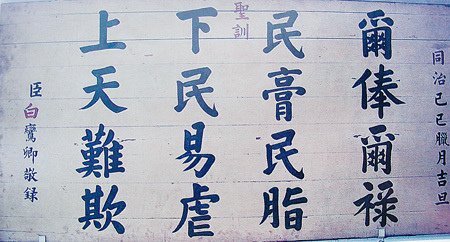 聖訓
同治己巳臘月吉旦
爾俸爾祿
民膏民脂
下民易虐
上天難欺
臣白鸞卿敬錄